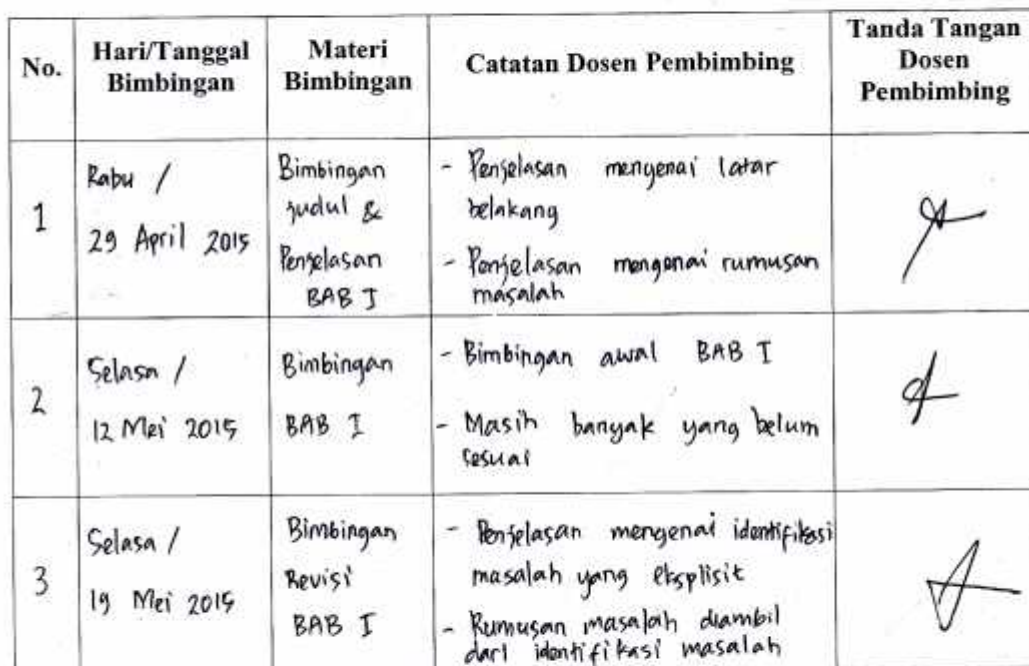 No.
Hari/Tanggal
Bimbingan
Materi
Bimbingan
Catatan Dosen Pembimbing
Tanda Tangan
Dosen
Pembimbing
1
Rabu /
29 April 2015
Bimbingan
judul &
Penjelasan
BAB I
- Penjelasan mengenai latar
belakang
- Penjelasan mengenai rumusan
masalah
2
Selasa /
12 Mei 2015
Bimbingan
BAB I
- Bimbingan awal BAB I
- Masih banyak yang belum
sesuai
3
Selasa /
19 Mei 2015
Bimbingan
Revisi
BAB I
- Penjelasan mengenai identifikasi
masalah yang eksplisit
- Rumusan masalah diambil
dari identifikasi masalah